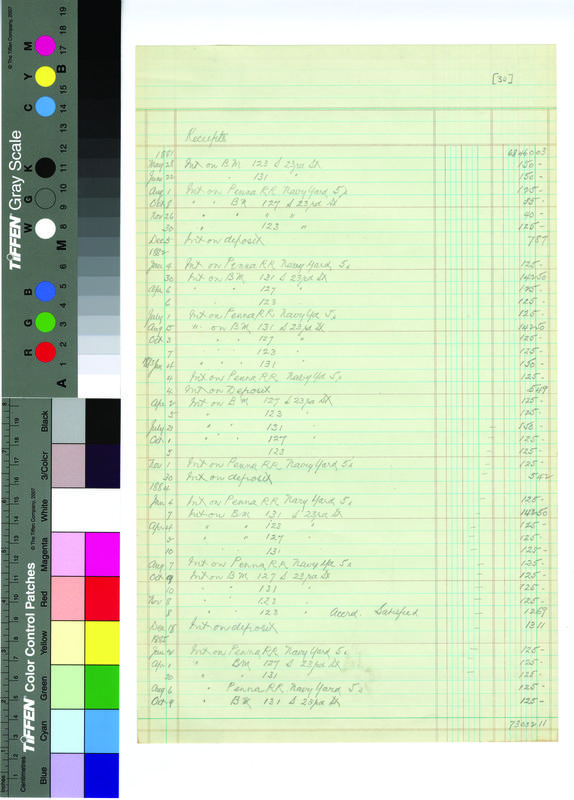 [30]
Receipts
1881 6846003
May 28 Int on B M 123 S 23rd St 150 -
June 22 " " 131 " 150 -
Aug 1 Int on Penna RR Navy Yard 5s 125 -
Oct 8 " " B M 127 S 23rd St 85 -
Nov 26 " " " " 40 -
30 " 123 " 125 -
Dec 5 Int on deposit 787
1882
Jan 4 Int on Penna RR Navy Yard 5s 125 -
30 Int on B M 131 S 23rd St 14250
Apr 6 " " 127 " 125 -
6 " 123 125 -
July 1 Int on Penna RR Navy Yd 5s 125 -
Aug 5 " on B M 131 S 23rd St 14250
Oct 3 " " 127 " 125 -
7 " 123 " 125 -
1883 Jan 4 " " " 131 " 150 -
4 Int on Penna RR Navy Yd 5s 125 -
4 Int on Deposit 549
Apr 2 Int on B M 127 S 23rd St 125 -
5 " 123 " 125 -
July 21 " " 131 " 150 -
Oct 1 " " 127 " 125 -
5 " 123 125 -
Nov 1 Int on Penna RR Navy Yard 5s 125 -
30 Int on deposit 542
1884
Jan 4 Int on Penna RR Navy Yard 5s 125 -
7 Int on B M 131 S 23rd St 14250
Apr 4 " " 123 " 125 -
5 " " 127 " 125 -
10 " 131 125 -
Aug 7 Int on Penna RR Navy Yard 5s 125 -
Oct 9 Int on B M 127 S 23rd St 125 -
10 " " 131 " 125 -
Nov 8 " 123 " 125 -
8 " " 123 " Accrd. Satisfied 1269
Dec 18 Int on deposit 1311
1885
Jan 2 Int on Penna RR Navy Yard 5s 125 -
Apr 1 " B M 127 S 23rd St 125 -
20 " " 131 125 -
Aug 6 " Penna RR Navy Yard 5s 125 -
Oct 9 " B M 131 S 23rd St 125 -
7303211
TIFFEN Gray Scale
© The Tiffen Company, 2007
R G B W G K C Y M
A 1 2 3 4 5 6 M 8 9 10 11 12 13 14 15 B 17 18 19
TIFFEN Color Control Patches
© The Tiffen Company, 2007
Blue Cyan Green Yellow Red Magenta White 3/Color Black
Inches
Centimetres